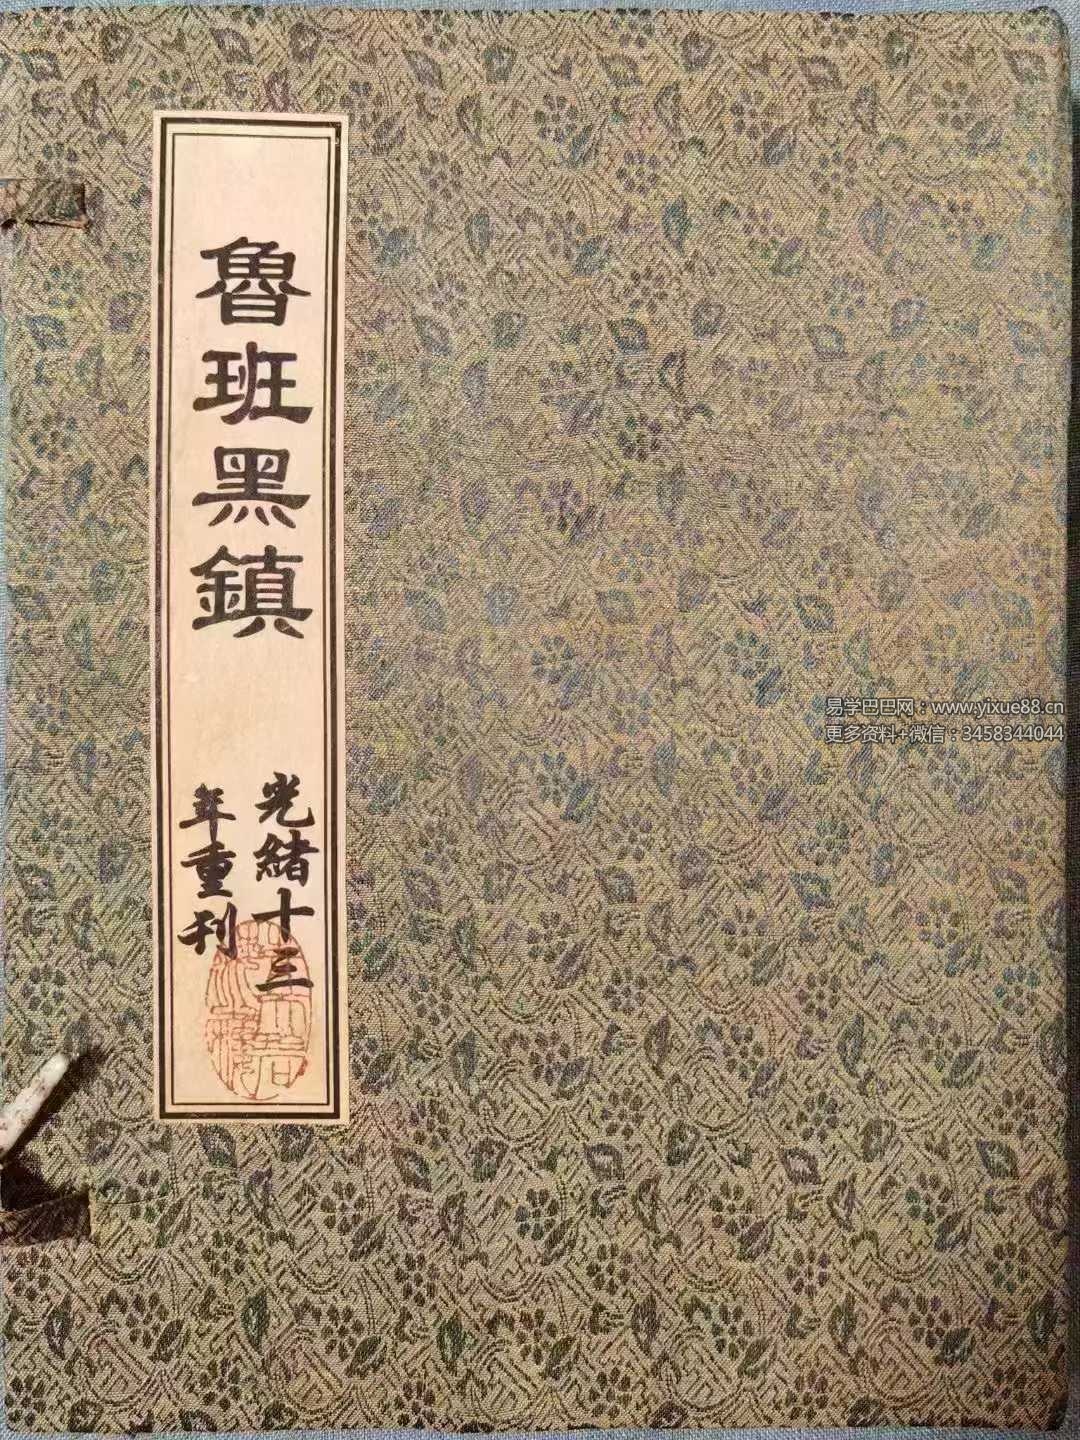 魯班黑鎮
光緒十三
年重刊
易学巴巴网：www.yixue88.cn
更多资料+微信：3458344044